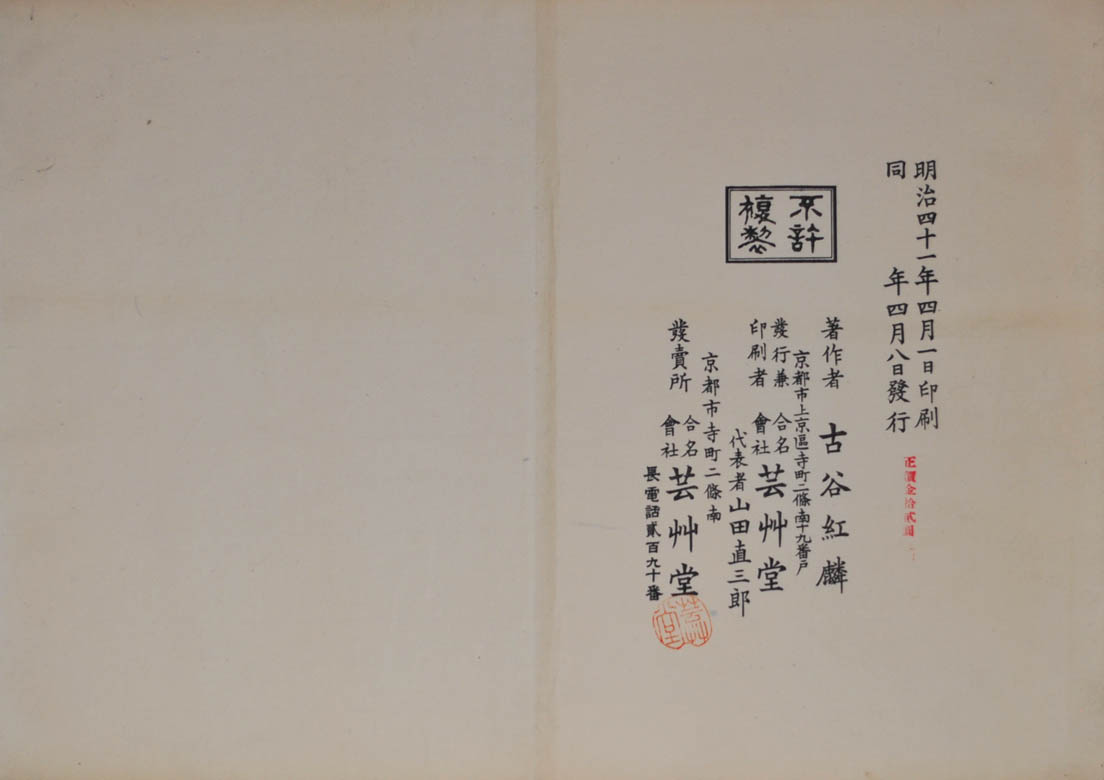 明治四十一年四月一日印刷
同年四月八日發行
正價金拾貳圓
不許
複製
著作者 古谷紅麟
京都市上京區寺町二條南十九番戸
發行兼
印刷者
合名
會社
芸艸堂
代表者山田直三郎
京都市寺町二條南
發賣所
合名
會社
芸艸堂
長電話貳百九十番
芸艸
堂